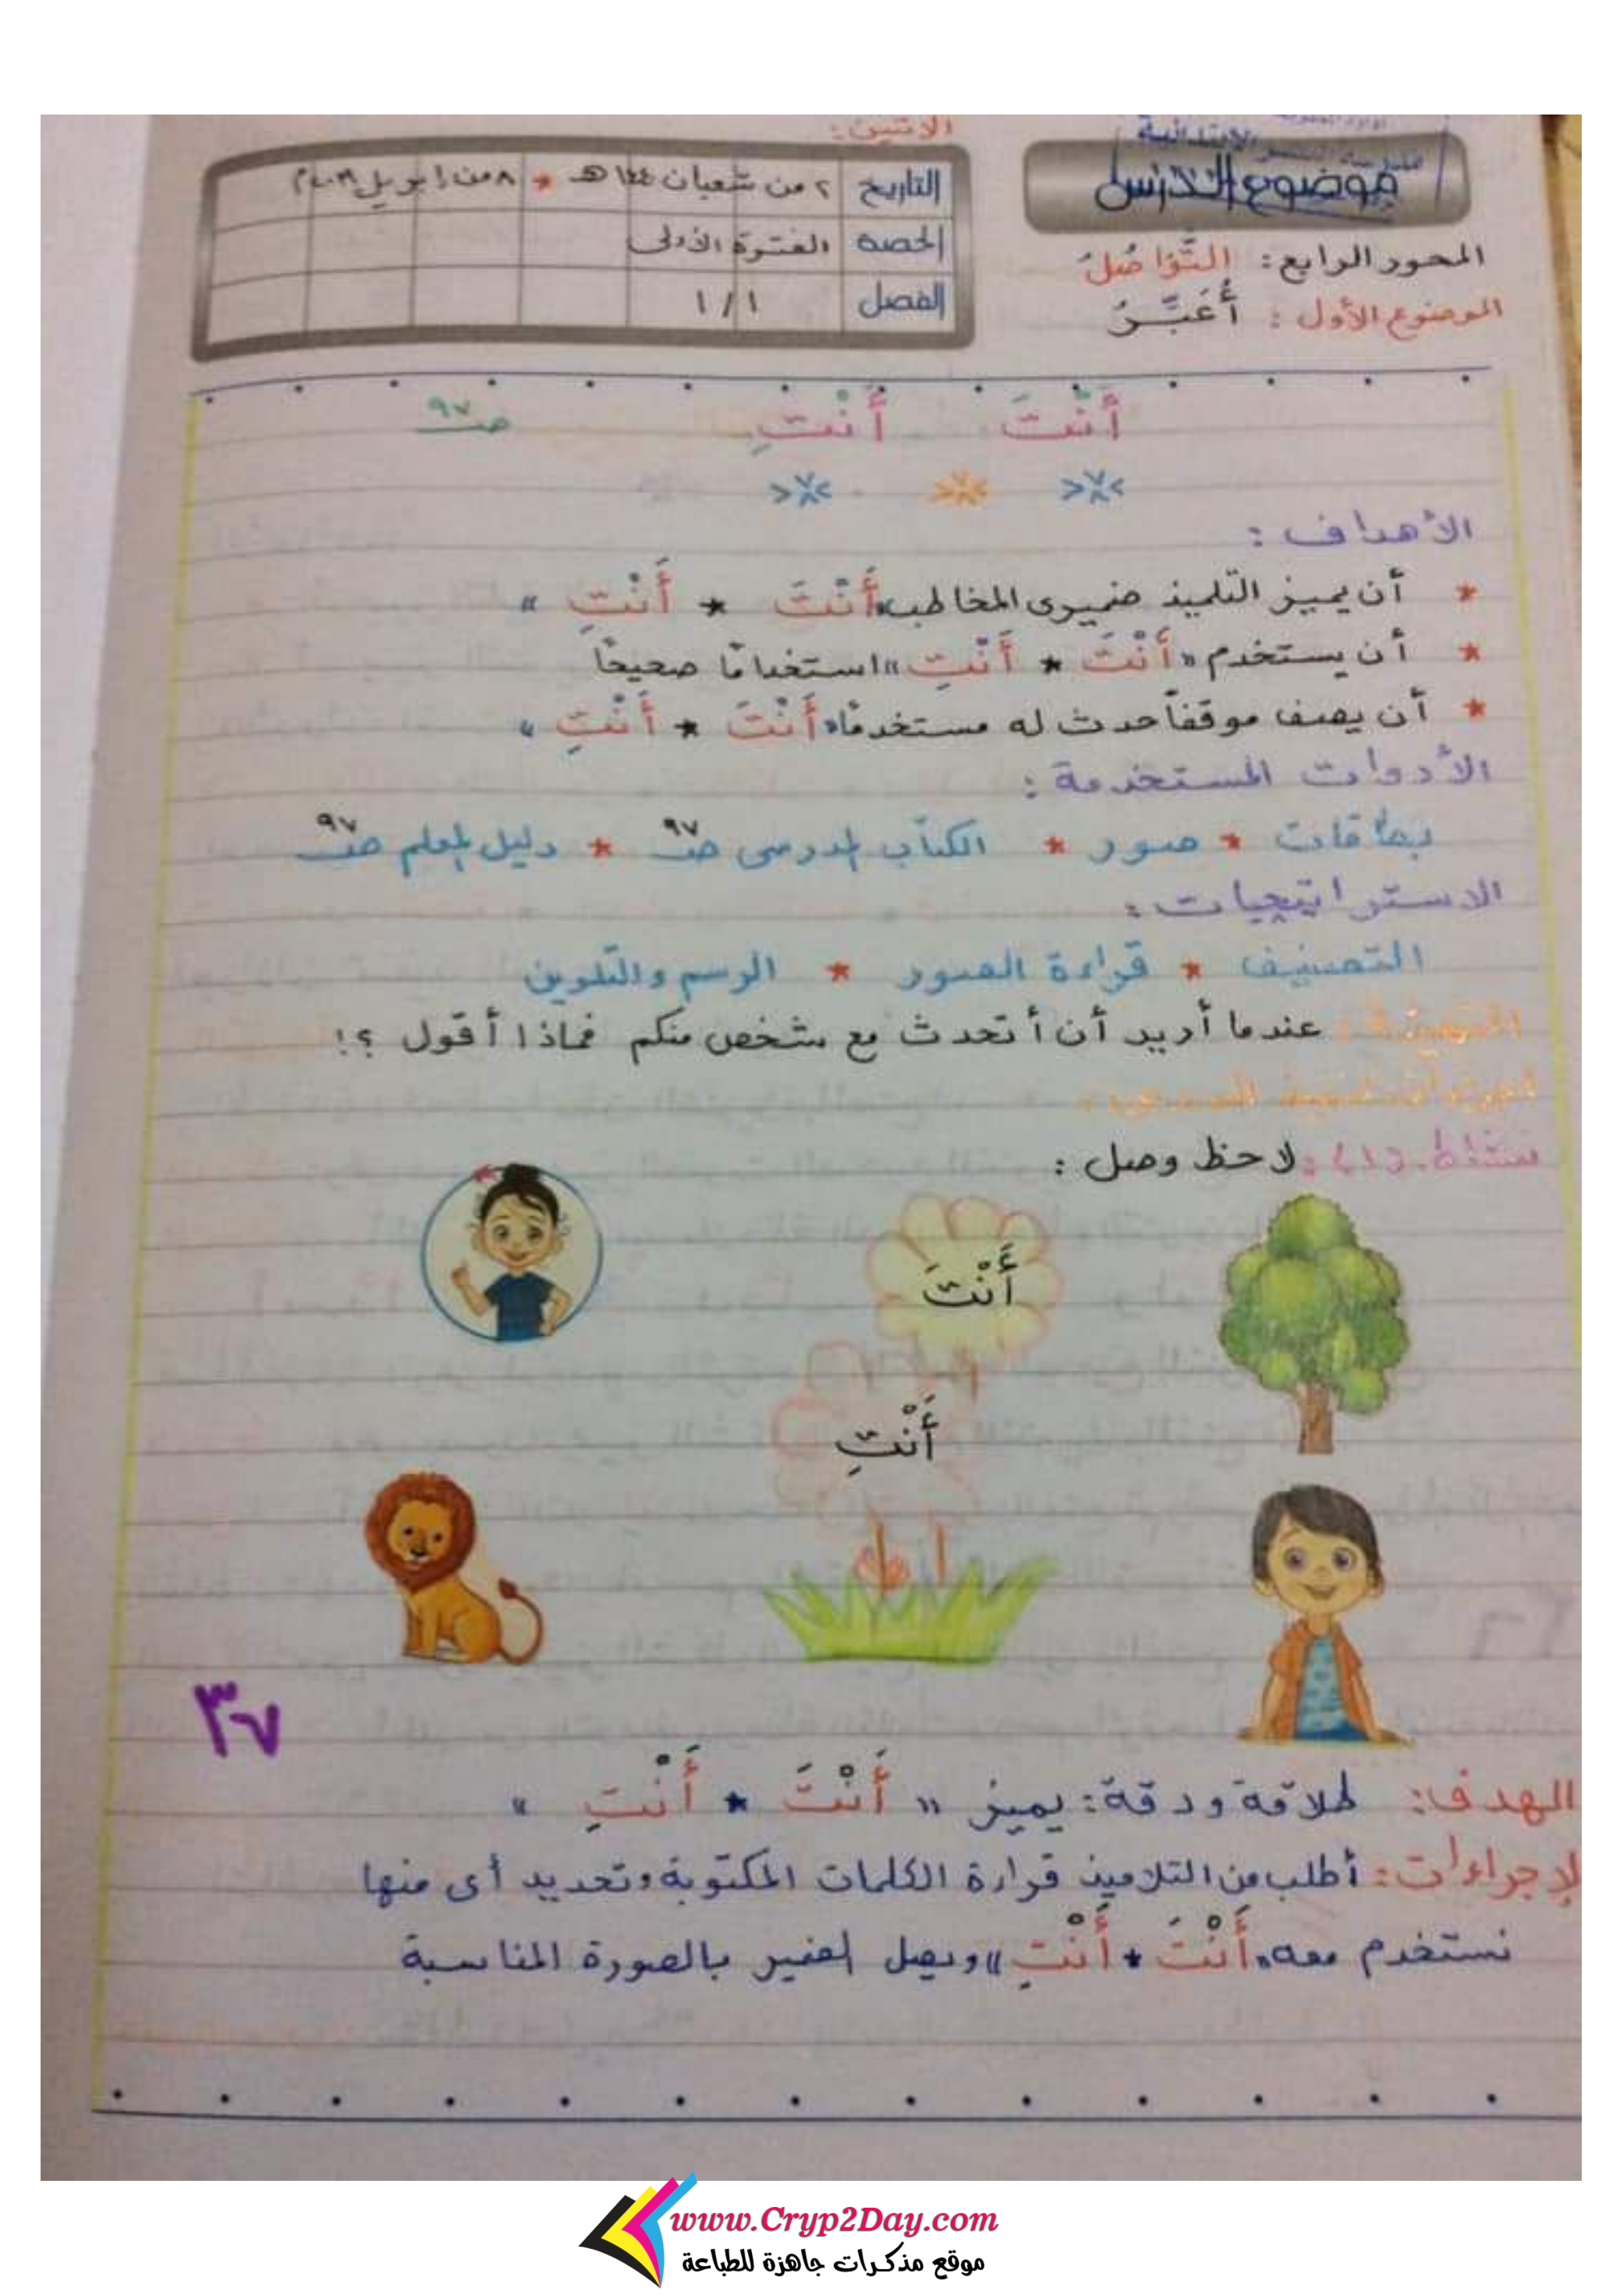 الابتدائية
موضوع الدرس
المحور الرابع: التَّوَاصُلُ
الموضوع الأول: أُعَبِّرُ
الاثنين:
التاريخ ٢ من شعبان هـ * ٨ من إبريل م
الحصة الفترة الأولى
الفصل ١/١
أَنْتَ أَنْتِ صـ ٩٧
الأهداف:
* أن يميز التلميذ ضميرى المخاطب «أَنْتَ * أَنْتِ»
* أن يستخدم «أَنْتَ * أَنْتِ» استخدامًا صحيحًا
* أن يصف موقفاً حدث له مستخدمًا «أَنْتَ * أَنْتِ»
الأدوات المستخدمة:
بطاقات * صور * الكتاب المدرسى صـ ٩٧ * دليل المعلم صـ ٩٧
الاستراتيجيات:
التصنيف * قراءة الصور * الرسم والتلوين
التهيئة: عندما أريد أن أتحدث مع شخص منكم فماذا أقول ؟!
نشاط: لاحظ وصل:
أَنْتَ
أَنْتِ
٣٧
الهدف: طلاقة ودقة: يميز «أَنْتَ * أَنْتِ»
الإجراءات: أطلب من التلاميذ قرارة الكلمات المكتوبة وتحديد أى منها
نستخدم معه «أَنْتَ * أَنْتِ» ويصل الضمير بالصورة المناسبة
www.Cryp2Day.com
موقع مذكرات جاهزة للطباعة